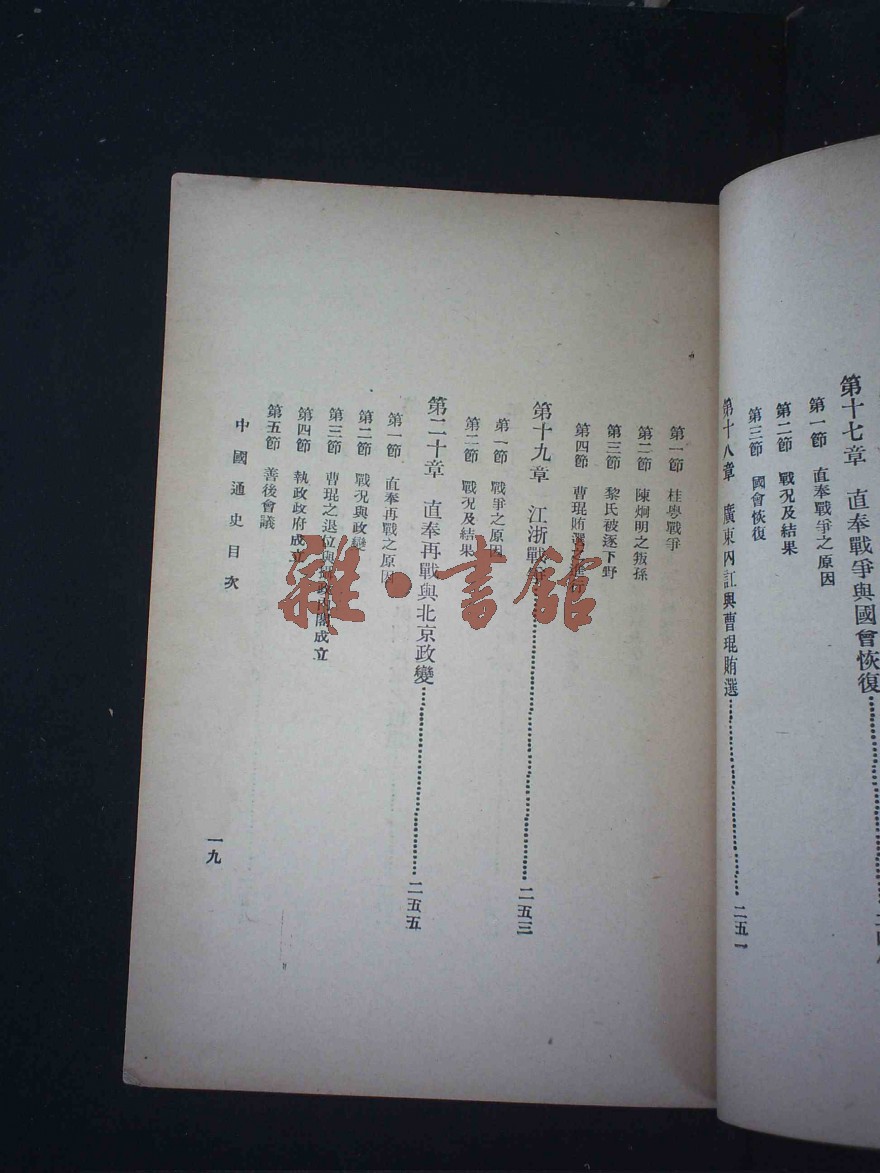 第十七章 直奉戰爭與國會恢復
第一節 直奉戰爭之原因
第二節 戰況及結果
第三節 國會恢復
第十八章 廣東內訌與曹琨賄選 二五一
第一節 桂粵戰爭
第二節 陳炯明之叛孫
第三節 黎氏被逐下野
第四節 曹琨賄選
第十九章 江浙戰爭 二五三
第一節 戰爭之原因
第二節 戰況及結果
第二十章 直奉再戰與北京政變 二五五
第一節 直奉再戰之原因
第二節 戰況與政變
第三節 曹琨之退位與攝政內閣成立
第四節 執政政府成立
第五節 善後會議
中國通史目次
一九
雜·書館